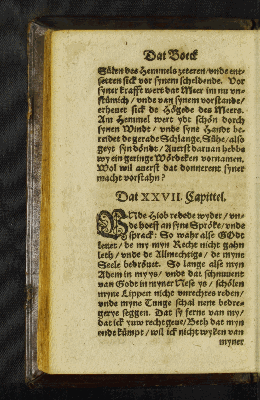 Dat Boeck
Sülen des Hemmels zeteren / vnde ent-
setten sick vor synem scheldende. Vor
syner krafft wert dat Meer im nu vn-
stümich / vnde van synem vorstande /
erheuet sick de Högede des Meers.
Am Hemmel wert ydt schön dorch
synen Windt / vnde syne Handt be-
reidet de gerade Schlange. Sühe / also
geyt syn döndt / Auerst daruan hebbe
wy ein geringe Wördeken vornamen.
Wol wil auerst dat donnerent syner
macht vorstahn?
Dat XXVII. Capittel.
VNde Hiob redede wyder / vn-
de hoeff an syne Spröke / vnde
sprack: So wahr alse GOdt
leuet / de my myn Recht nicht gahn
leth / vnde de Allmechtige / de myne
Seele bedröuet. So lange alse myn
Adem in my ys / vnde dat schnuuent
van Godt in myner Nese ys / schölen
myne Lippen nicht vnrechtes reden /
vnde myne Tunge schal nene bedre-
gerye seggen. Dat sy ferne van my /
dat ick yuw recht geue / Beth dat myn
ende kümpt / wil ick nicht wyken van
myner